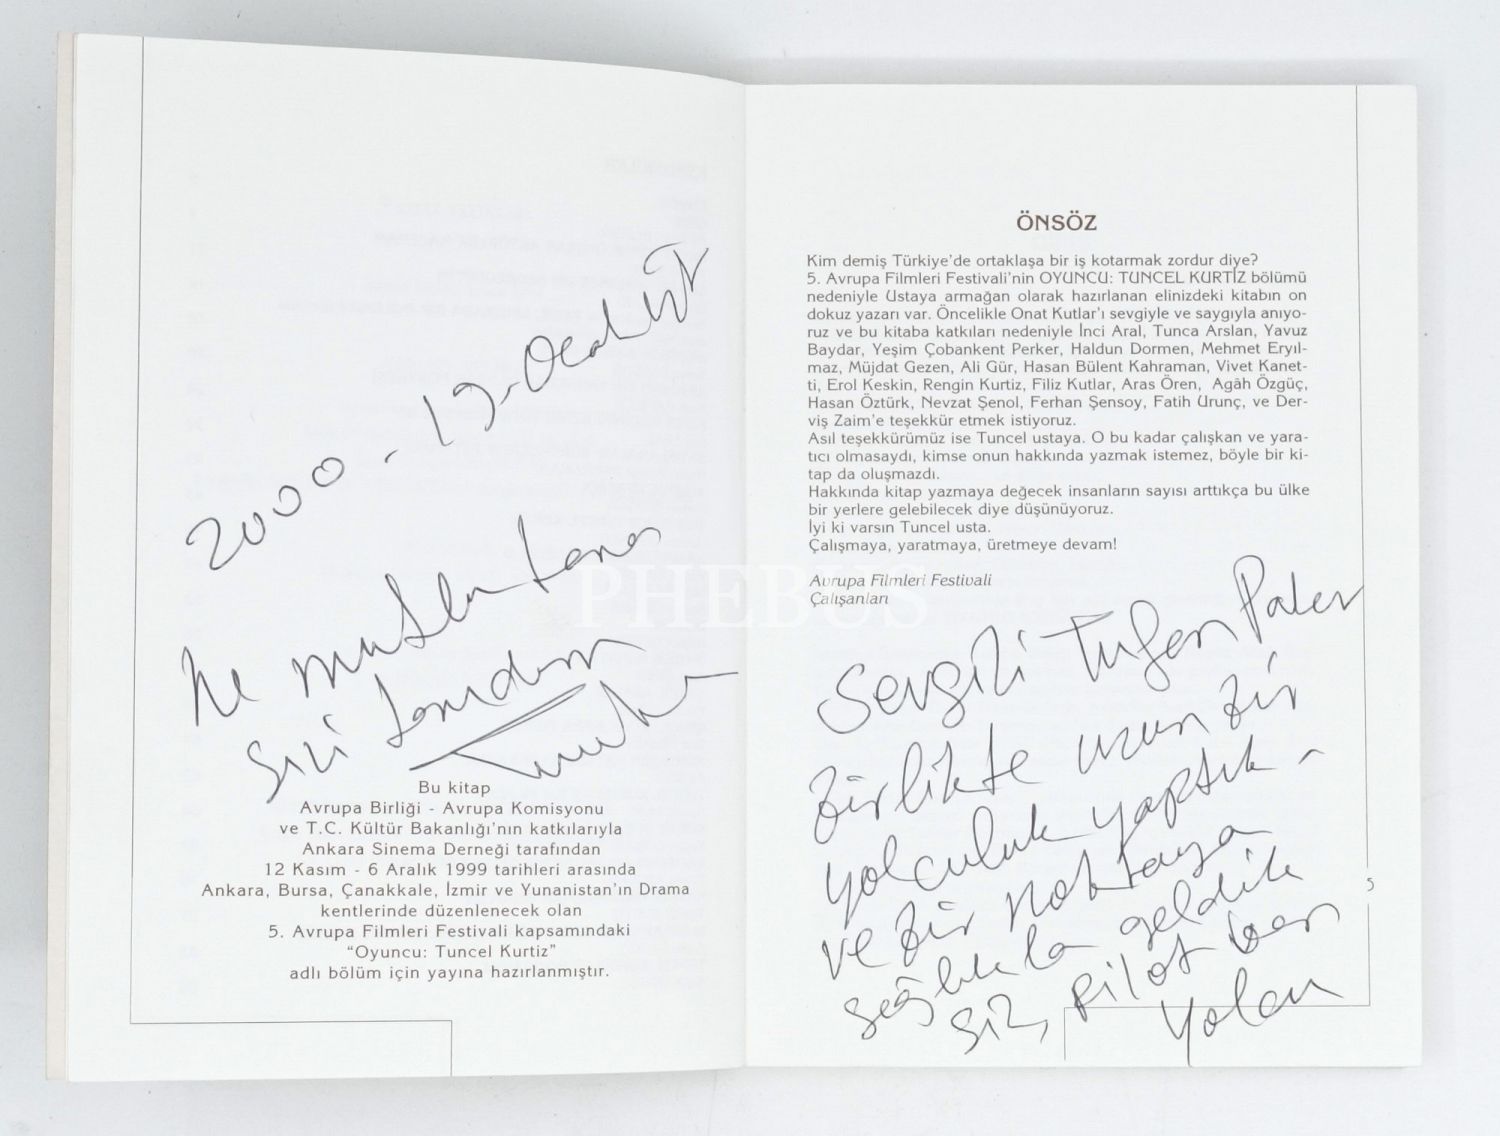 2000 - 19 - Ocak
Ne mutlu bana
sizi tanıdım
Bu kitap
Avrupa Birliği - Avrupa Komisyonu
ve T.C. Kültür Bakanlığı'nın katkılarıyla
Ankara Sinema Derneği tarafından
12 Kasım - 6 Aralık 1999 tarihleri arasında
Ankara, Bursa, Çanakkale, İzmir ve Yunanistan'ın Drama
kentlerinde düzenlenecek olan
5. Avrupa Filmleri Festivali kapsamındaki
“Oyuncu: Tuncel Kurtiz”
adlı bölüm için yayına hazırlanmıştır.
ÖNSÖZ
Kim demiş Türkiye'de ortaklaşa bir iş kotarmak zordur diye?
5. Avrupa Filmleri Festivali'nin OYUNCU: TUNCEL KURTİZ bölümü
nedeniyle Ustaya armağan olarak hazırlanan elinizdeki kitabın on
dokuz yazarı var. Öncelikle Onat Kutlar'ı sevgiyle ve saygıyla anıyo-
ruz ve bu kitaba katkıları nedeniyle İnci Aral, Tunca Arslan, Yavuz
Baydar, Yeşim Çobankent Perker, Haldun Dormen, Mehmet Eryıl-
maz, Müjdat Gezen, Ali Gür, Hasan Bülent Kahraman, Vivet Kanet-
ti, Erol Keskin, Rengin Kurtiz, Filiz Kutlar, Aras Ören, Agâh Özgüç,
Hasan Öztürk, Nevzat Şenol, Ferhan Şensoy, Fatih Urunç, ve Der-
viş Zaim'e teşekkür etmek istiyoruz.
Asıl teşekkürümüz ise Tuncel ustaya. O bu kadar çalışkan ve yara-
tıcı olmasaydı, kimse onun hakkında yazmak istemez, böyle bir ki-
tap da oluşmazdı.
Hakkında kitap yazmaya değecek insanların sayısı arttıkça bu ülke
bir yerlere gelebilecek diye düşünüyoruz.
İyi ki varsın Tuncel usta.
Çalışmaya, yaratmaya, üretmeye devam!
Avrupa Filmleri Festivali
Çalışanları
Sevgili Tufan
birlikte uzun bir
yolculuk yaptık -
ve bir noktaya
sağlıkla geldik
siz, pilot ben
yolcu
5
PHEBUS